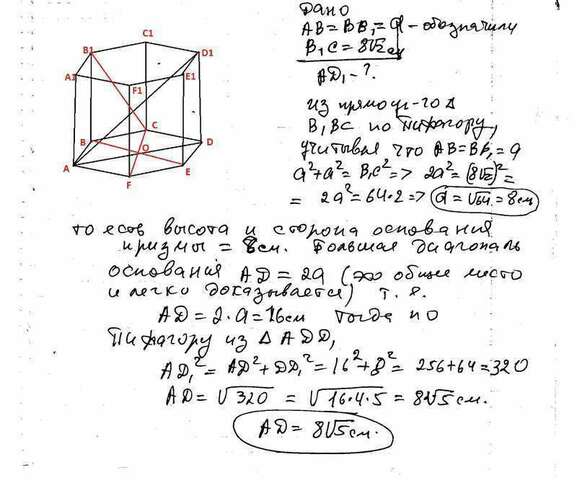 C1
B1
D1
A1
E1
F1
C
B
D
O
A
E
F
Дано
AB = BB₁ = a - обозначили
B₁C = 8√2 см
AD₁ - ?
из прямоуг-го Δ
B₁BC по Пифагору,
учитывая что AB = BB₁ = a
a² + a² = B₁C² => 2a² = (8√2)² =
= 2a² = 64·2 => a = √64 = 8см
то есть высота и сторона основания
призмы = 8см. Большая диагональ
основания AD = 2a (это общее место
и легко доказывается) т.е.
AD = 2·a = 16см тогда по
Пифагору из Δ ADD₁
AD₁² = AD² + DD₁² = 16² + 8² = 256 + 64 = 320
AD = √320 = √16·4·5 = 8√5 см.
AD = 8√5 см.